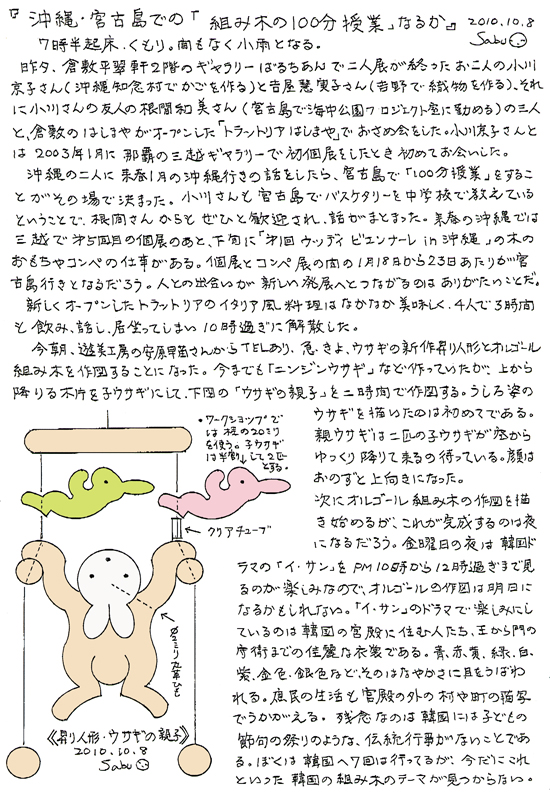 『沖縄・宮古島での「組み木の100分授業」なるか』 2010.10.8
Sabu
7時半起床、くもり。間もなく小雨となる。
昨夕、倉敷平翠軒2階のギャラリーぱるちあんで二人展が終ったお二人の小川
京子さん(沖縄知念村でかごを作る)と音屋慧実子さん(吉野で織物を作る)、それ
に小川さんの友人の根間和美さん(宮古島で海中公園プロジェクト室に勤める)の三人
と、倉敷のはしまやがオープンした「トラットリアはしまや」でおさめ会をした。小川京子さんと
は2003年1月に那覇の三越ギャラリーで初個展をしたとき初めてお会いした。
沖縄の二人に来春1月の沖縄行きの話をしたら、宮古島で「100分授業」をするこ
とがその場で決まった。小川さんも宮古島でバスケタリーを中学校で教えている
ということで、根間さんからもぜひと歓迎され、話がまとまった。来春の沖縄では
三越で第5回目の個展のあと、下旬に「第1回ウッディビエンナーレ in 沖縄」の木の
おもちゃコンペの仕事がある。個展とコンペ展の間の1月18日から23日あたりが宮
古島行きとなるだろう。人との出会いが新しい発展へとつながるのはありがたいことだ。
新しくオープンしたトラットリアのイタリア風料理はなかなか美味しく、4人で3時間
も飲み、話し、居坐ってしまい10時過ぎに解散した。
今朝、遊美工房の安原甲苗さんからTELあり、急きょ、ウサギの新作昇り人形とオルゴール
組み木を作図することになった。今までも「ニンジンウサギ」など作っていたが、上から
降りる木片を子ウサギにして、下図の「ウサギの親子」を二時間で作図する。うしろ姿の
ウサギを描いたのは初めてである。
親ウサギは二匹の子ウサギが空から
ゆっくり降りて来るの待っている。顔は
おのずと上向きになった。
次にオルゴール組み木の作図を描
き始めるが、これが完成するのは夜
になるだろう。金曜日の夜は韓国ド
ラマの「イ・サン」をPM10時から12時過ぎまで見
るのが楽しみなので、オルゴールの作図は明日に
なるかもしれない。「イ・サン」のドラマで楽しみにし
ているのは韓国の宮殿に住む人たち、王から門の
守衛までの佳麗な衣裳である。青、赤、黄、緑、白、
紫、金色、銀色など、そのはなやかさに目をうばわ
れる。庶民の生活も宮殿の外の村や町の描写
でうかがえる。残念なのは韓国には子どもの
節句の祭りのような、伝統行事がないことであ
る。ぼくは韓国へ7回は行ってるが、今だにこれ
といった韓国の組み木のテーマが見つからない。
・ワークショップで
は桂の20ミリ
を使う。子ウサギ
は半割りして2匹
とする。
クリアチューブ
ミリ丸革ひも
《昇り人形・ウサギの親子》
2010.10.8
Sabu